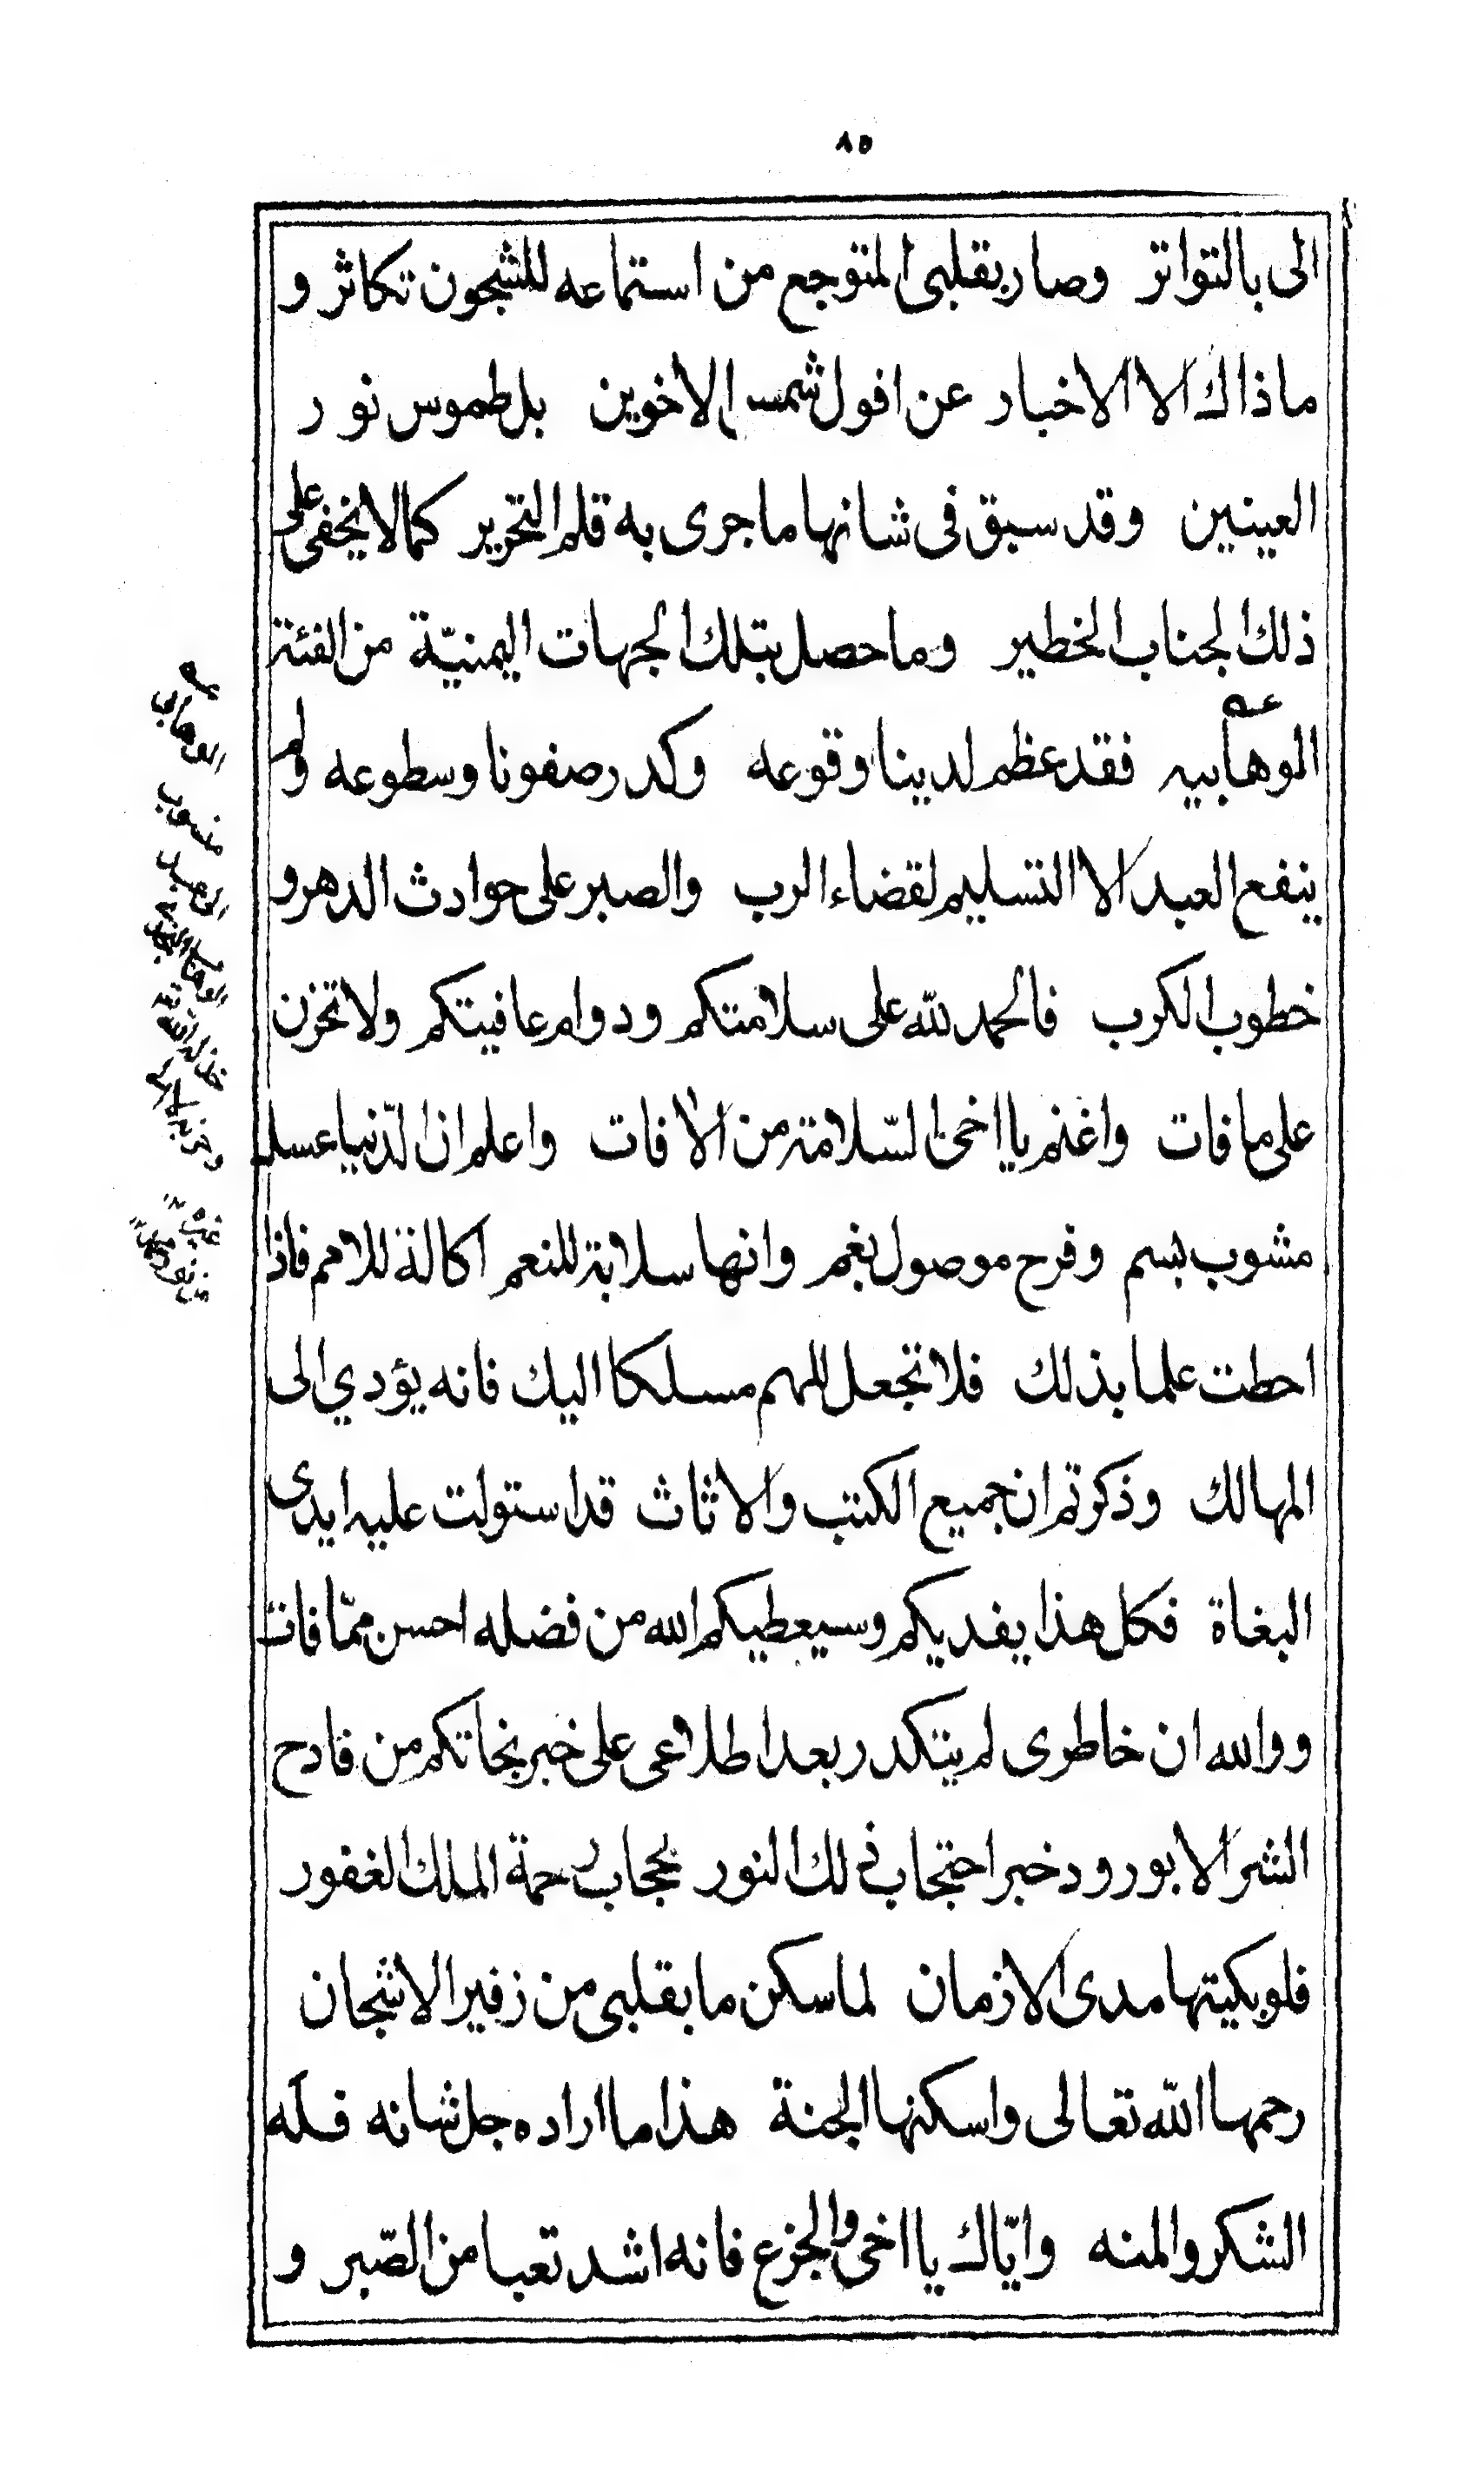 ٨٥
الى بالتواتر وصار بقلبى المتوجع من استماعه للشجون تكاثر و
ما ذاك الا الاخبار عن افول شمس الاخوين بل طموس نور
العينين وقد سبق فى شانها ما جرى به قلم التحرير كما لا يخفى على
ذلك الجناب الخطير وما حصل بتلك الجهات اليمنيّة من الفئة
الوهابيه فقد عظم لدينا وقوعه وكدر صفونا وسطوعه ولم
ينفع العبد الا التسليم لقضاء الرب والصبر على حوادث الدهر و
خطوب الكرب فالحمد لله على سلامتكم ودوام عافيتكم ولا تحزن
على ما فات واغنم يا اخى السّلامة من الافات واعلم ان الدّنيا عسل
مشوب بسم وفرح موصول بغم وانها سلابة للنعم اكالة للامم فاذا
احطت علما بذلك فلا تجعل للهم مسلكا اليك فانه يؤدي الى
المهالك وذكرتم ان جميع الكتب والاثاث قد استولت عليه ايدى
البغاة فكل هذا يفديكم وسيعطيكم الله من فضله احسن ممّا فات
ووالله ان خاطرى لم يتكدر بعد اطلاعى على خبر نجاتكم من قادح
الشر الا بورود خبر احتجاب ذلك النور بحجاب رحمة الملك الغفور
فلو بكيتها مدى الازمان لما سكن ما بقلبى من زفير الاشجان
رحمها اللّه تعالى واسكنها الجنة هذا ما اراده جل شانه فله
الشكر والمنه وايّاك يا اخى والجزع فانه اشد تعبا من الصّبر و
عه
الوهابى
منسوب
الى عبد
الوهاب
خذله الله